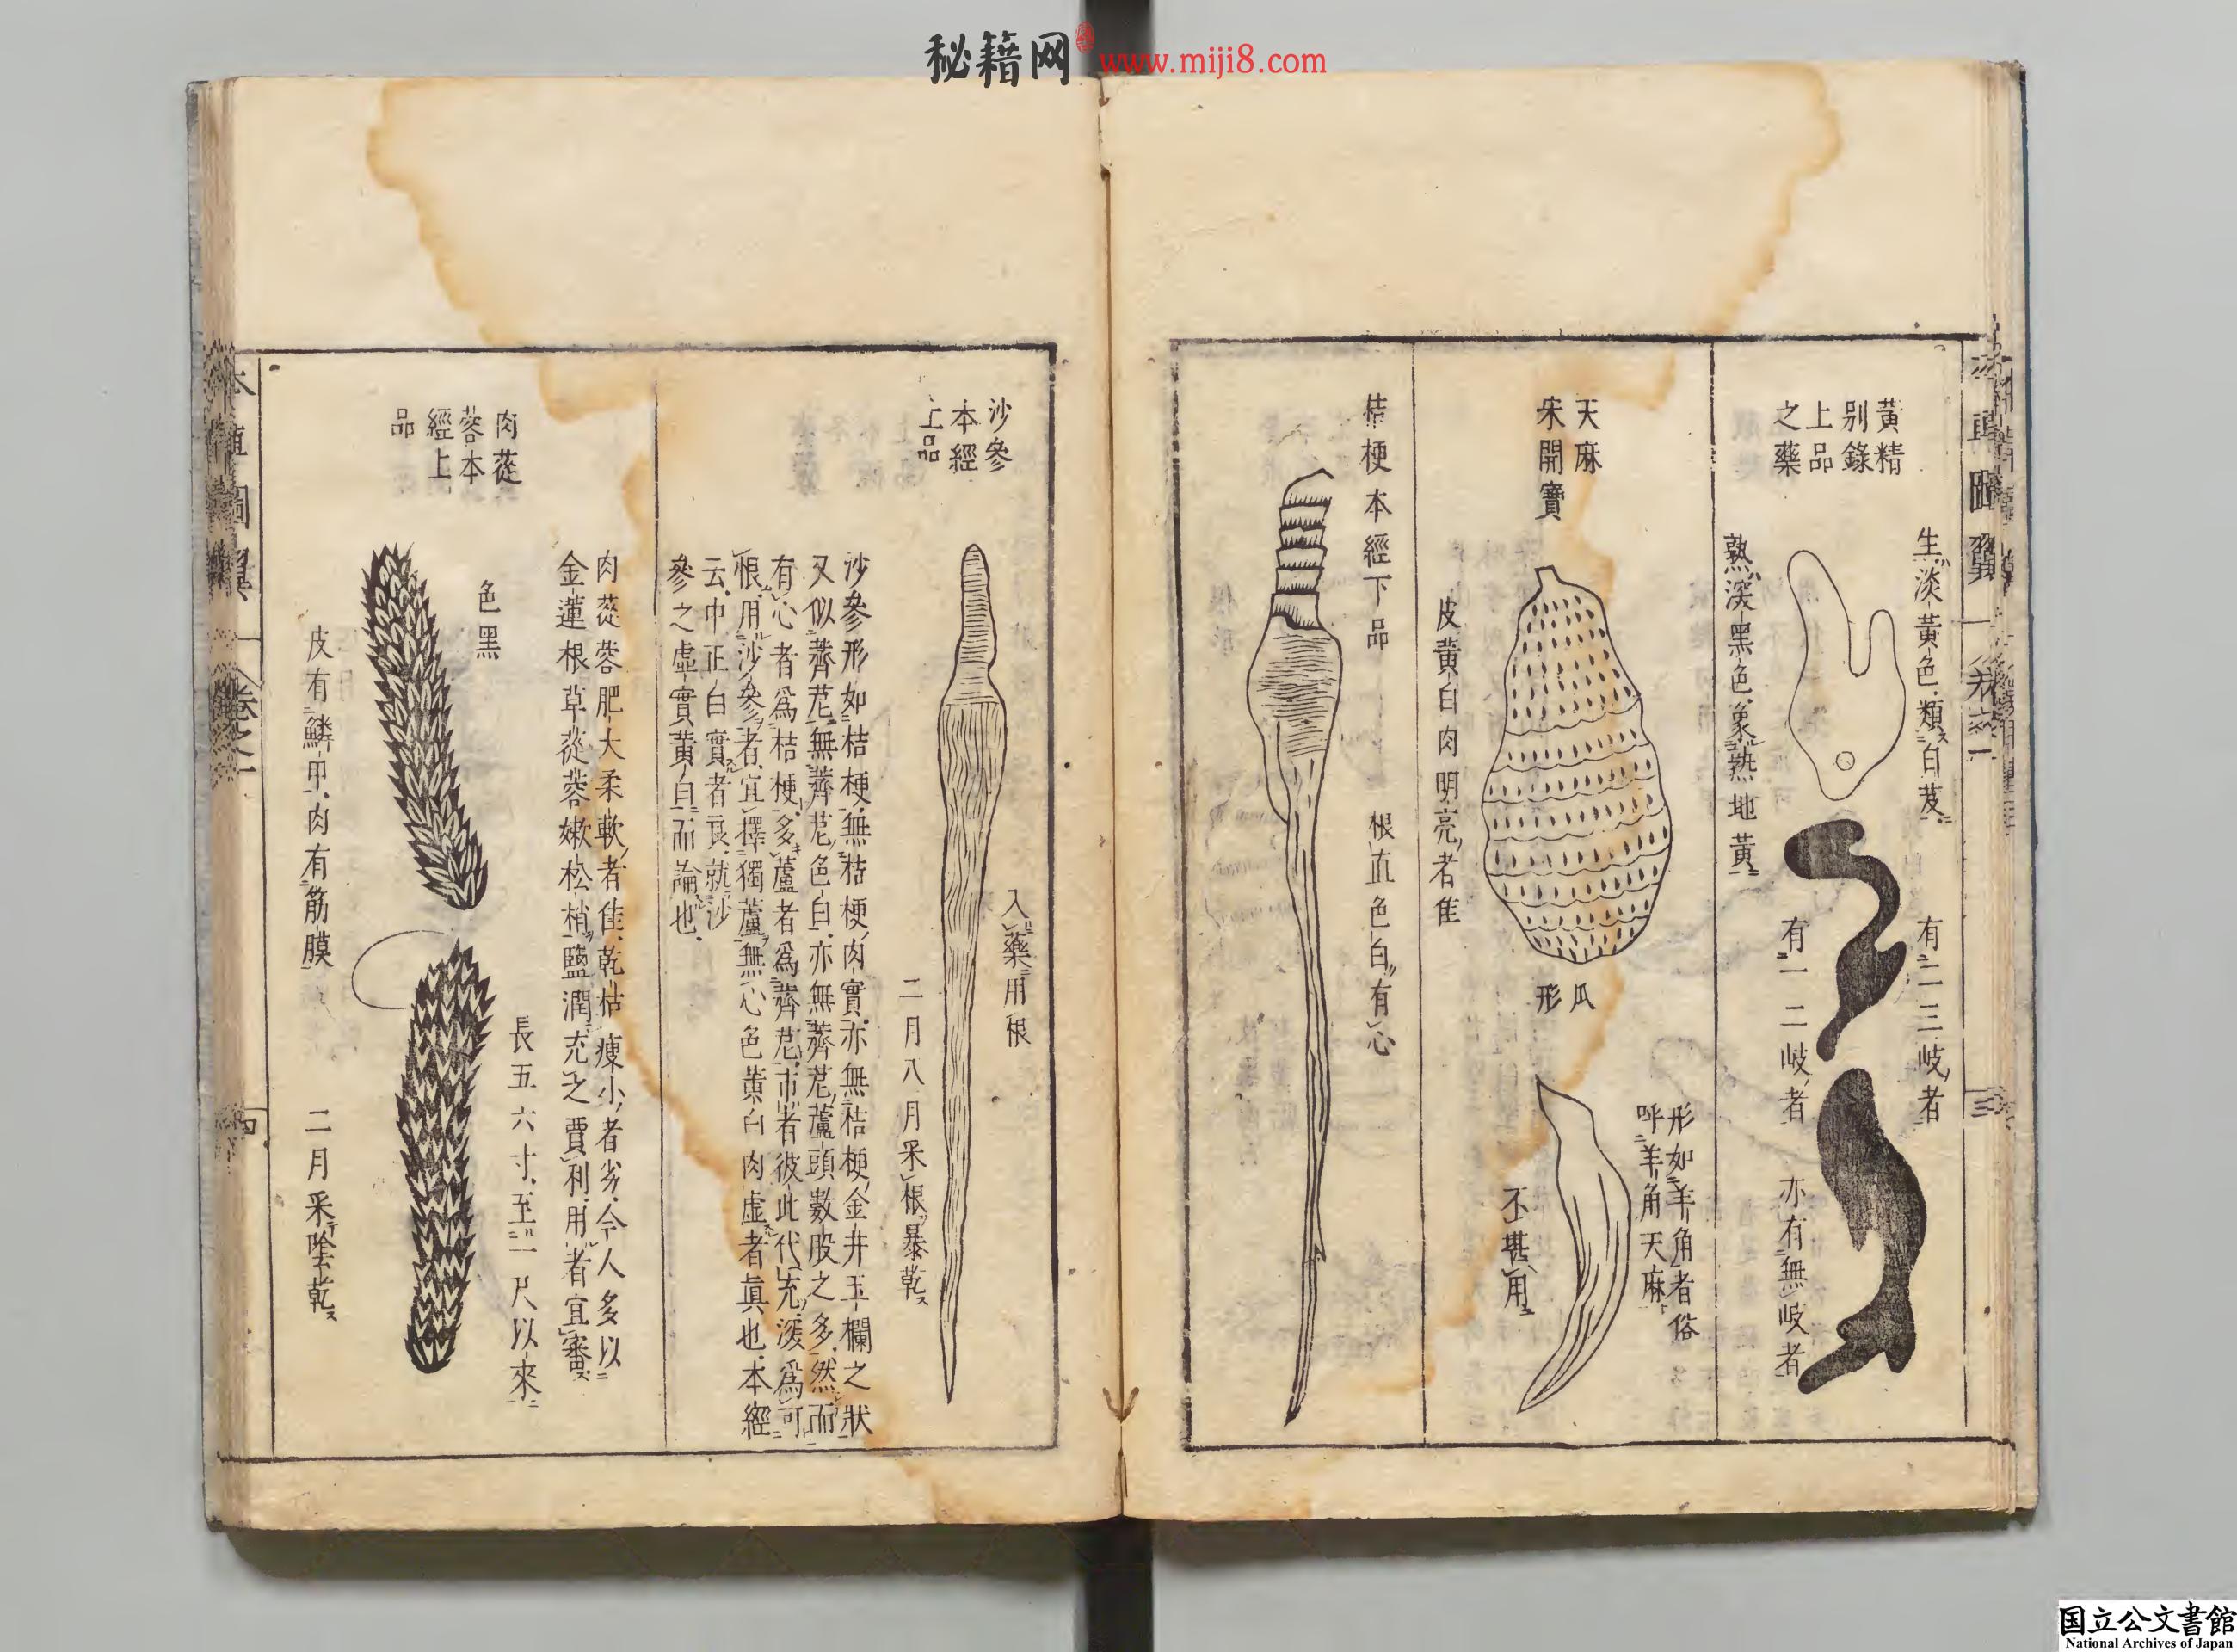 秘籍网 www.miji8.com
黃精
別錄
上品
之藥
生淡黃色類白芨
熟深黑色象熟地黃
有二三岐者
有一二岐者
亦有無岐者
天麻
宋開寶
皮黃白肉明亮者佳
瓜
形
形如羊角者俗
呼羊角天麻
不堪用
桔梗本經下品
根直色白有心
沙參
本經
上品
入藥用根
二月八月采根暴乾
沙參形如桔梗無桔梗肉實亦無桔梗金井玉欄之狀
又似薺苨無薺苨色白亦無薺苨蘆頭數股之多然而
有心者為桔梗多蘆者為薺苨市者彼此代充深為可
恨用沙參者宜擇獨蘆無心色黃白肉虛者真也本經
云中正白實者良就沙
參之虛實黃白而論也
肉蓯
蓉本
經上
品
肉蓯蓉肥大柔軟者佳乾枯瘦小者劣今人多以
金蓮根草蓯蓉嫩松梢鹽潤充之賈利用者宜審
色黑
長五六寸至一尺以來
皮有鱗甲肉有筋膜
二月采陰乾
国立公文書館
National Archives of Japan